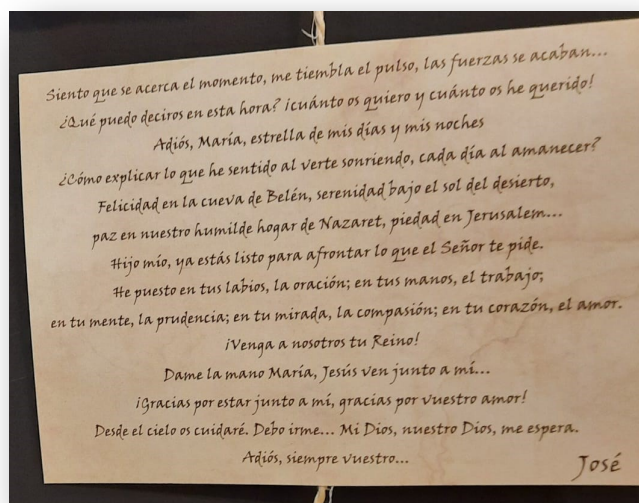 Siento que se acerca el momento, me tiembla el pulso, las fuerzas se acaban...
¿Qué puedo deciros en esta hora? ¡cuánto os quiero y cuánto os he querido!
Adiós, María, estrella de mis días y mis noches
¿Cómo explicar lo que he sentido al verte sonriendo, cada día al amanecer?
Felicidad en la cueva de Belén, serenidad bajo el sol del desierto,
paz en nuestro humilde hogar de Nazaret, piedad en Jerusalem...
Hijo mío, ya estás listo para afrontar lo que el Señor te pide.
He puesto en tus labios, la oración; en tus manos, el trabajo;
en tu mente, la prudencia; en tu mirada, la compasión; en tu corazón, el amor.
¡Venga a nosotros tu Reino!
Dame la mano María, Jesús ven junto a mí...
¡Gracias por estar junto a mí, gracias por vuestro amor!
Desde el cielo os cuidaré. Debo irme... Mi Dios, nuestro Dios, me espera.
Adiós, siempre vuestro...
José